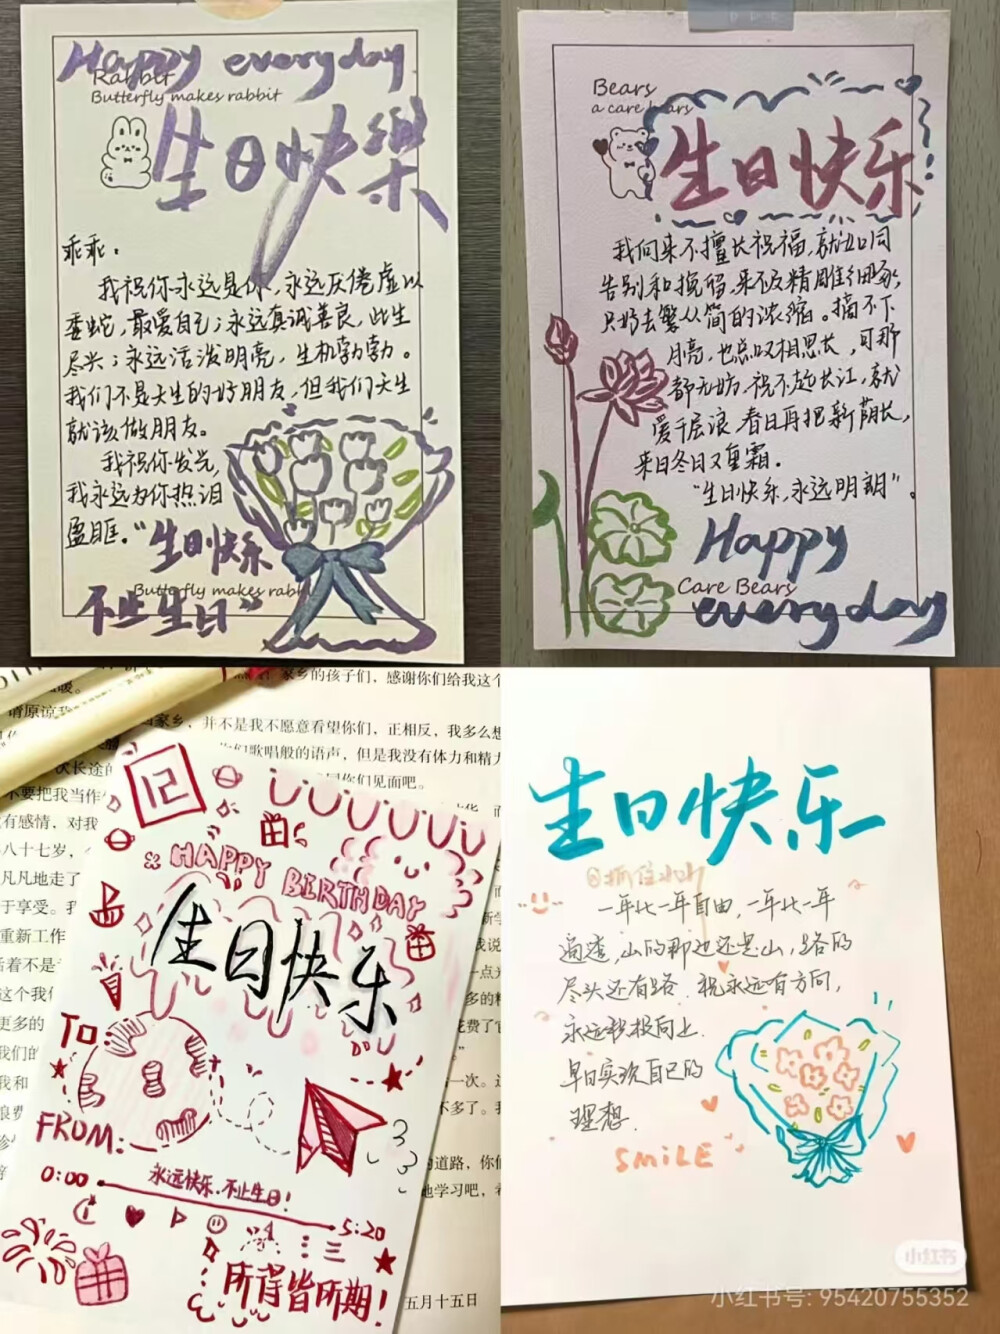 Happy everyday
Rabbit
Butterfly makes rabbit
生日快樂
乖乖。
我祝你永远是你,永远厌倦虚以
委蛇,最爱自己;永远真诚善良,此生
尽兴;永远活泼明亮,生机勃勃。
我们不是天生的好朋友,但我们天生
就该做朋友。
我祝你发光,
我永远为你热泪
盈眶。“生日快乐
Butterfly makes rabbi
不止生日”
Bears
a care bears
生日快乐
我向来不擅长祝福,就如同
告别和挽留,来不及精雕细琢,
只好去繁从简的浓缩。摘不下
月亮,也总叹相思长,可那
都无妨,祝不尽长江,就
爱千层浪,春日再把新荫长,
来日冬日又重霜。
“生日快乐,永远明朗”。
Happy
Care Bears
everyday
家乡的孩子们,感谢你们给我这个
请原谅我
家乡,并不是我不愿意看望你们,正相反,我多么想
们歌唱般的语声,但是我没有体力和精力
次长途的
同你们见面吧。
不要把我当作
有感情,对我
八十七岁,
凡凡地走了
于享受。我
重新工作
活着不是
这个我
更多的
我们的
我和
浪费
12
HAPPY BIRTHDAY
生日快乐
TO:
FROM:
0:00
永远快乐,不止生日!
5:20
所得皆所期!
我说
一点
多的
花费了
一次。
不多了。我
的道路,你们
地学习吧,
五月十五日
生日快乐
@抓住水水
一年比一年自由,一年比一年
通透,山的那边还是山,路的
尽头还有路,祝永远有方向,
永远积极向上.
早日实现自己的
理想.
SMiLE
小红书
小红书号: 95420755352